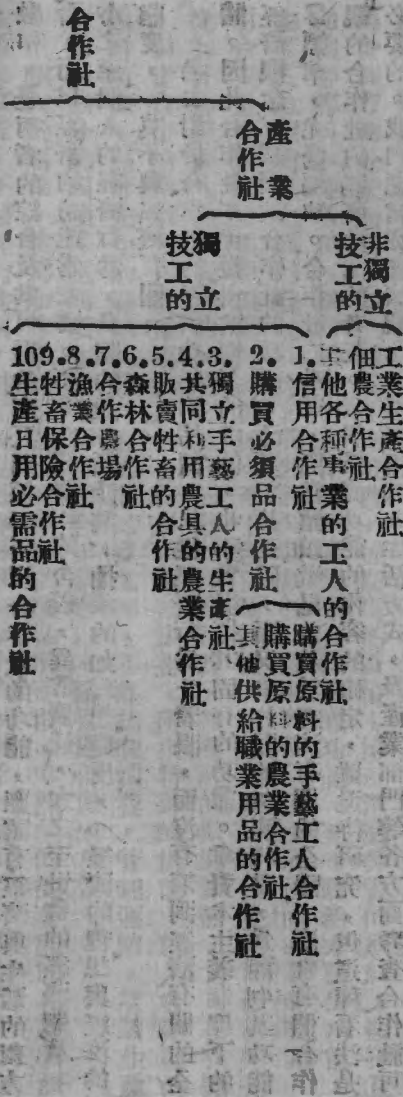 合作社
產業
合作社
非獨立
技工的
工業生產合作社
佃農合作社
其他各種事業的工人的合作社
獨立
技工的
1.信用合作社
2.購買必須品合作社
購買原料的手藝工人合作社
購買原料的農業合作社
其他供給職業用品的合作社
3.獨立手藝工人的生產社
4.共同利用農具的農業合作社
5.販賣牲畜的合作社
6.森林合作社
7.合作農場
8.漁業合作社
9.牲畜保險合作社
10生產日用必需品的合作社